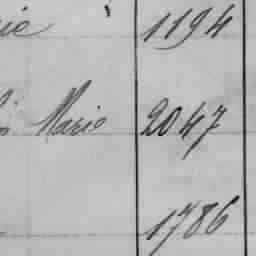 1194
Marie 2047
1786